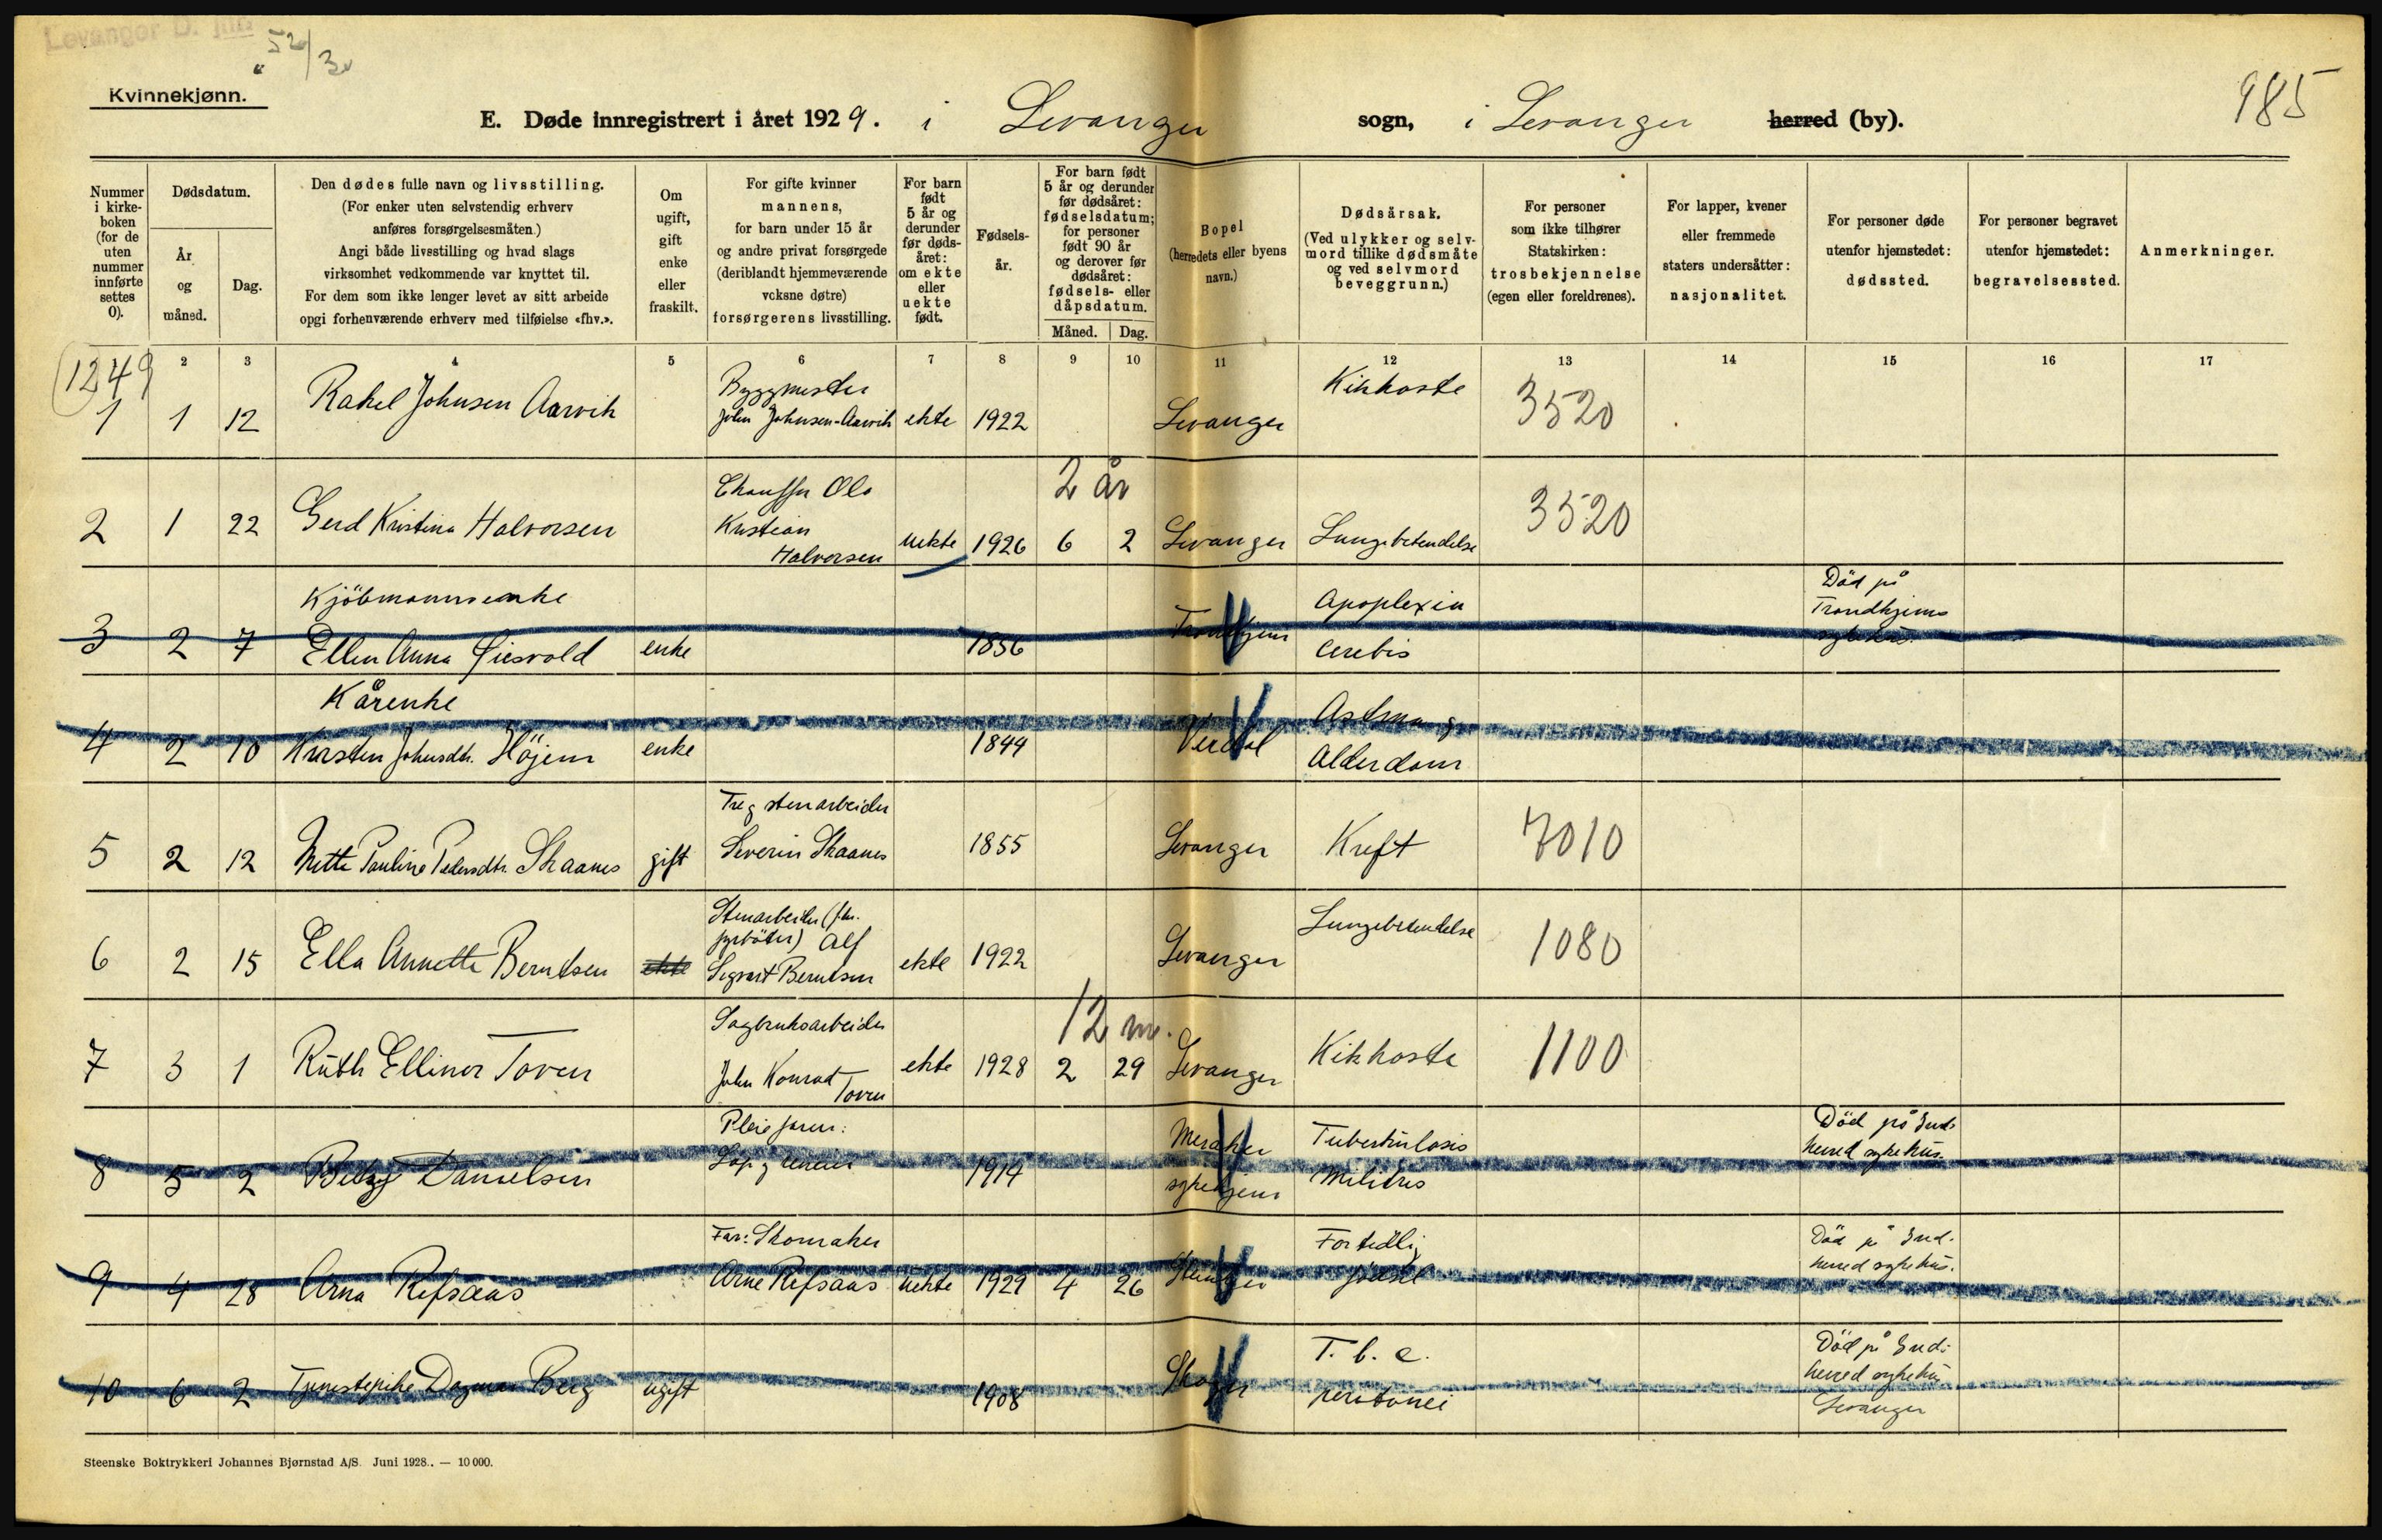 Levanger D.
52/3
Kvinnekjønn.
985
E. Døde innregistrert i året 1929. i Levanger sogn, i Levanger herred (by).
Nummer i kirke-boken (for de uten nummer innførte settes 0).
Dødsdatum.
År og måned.
Dag.
Den dødes fulle navn og livsstilling.
(For enker uten selvstendig erhverv
anføres forsørgelsesmåten.)
Angi både livsstilling og hvad slags
virksomhet vedkommende var knyttet til.
For dem som ikke lenger levet av sitt arbeide
opgi forhenværende erhverv med tilføielse «fhv.».
Om ugift, gift enke eller fraskilt.
For gifte kvinner
mannens,
for barn under 15 år
og andre privat forsørgede
(deriblandt hjemmeværende
voksne døtre)
forsørgerens livsstilling.
For barn født 5 år og derunder før døds-året: om ekte eller uekte født.
Fødsels-år.
For barn født
5 år og derunder
før dødsåret:
fødselsdatum;
for personer
født 90 år
og derover før
dødsåret:
fødsels- eller
dåpsdatum.
Måned. Dag.
Bopel
(herredets eller byens
navn.)
Dødsårsak.
(Ved ulykker og selv-
mord tillike dødsmåte
og ved selvmord
beveggrunn.)
For personer
som ikke tilhører
Statskirken:
trosbekjennelse
(egen eller foreldrenes).
For lapper, kvener
eller fremmede
staters undersåtter:
nasjonalitet.
For personer døde
utenfor hjemstedet:
dødssted.
For personer begravet
utenfor hjemstedet:
begravelsessted.
Anmerkninger.
1249
2 3 4 5 6 7 8 9 10 11 12 13 14 15 16 17
Byggmester Kikhoste
1 1 12 Rakel Johnsen Aarvik John Johnsen-Aarvik ekte 1922 Levanger 3520
Chauffør Ole 2 år
Kristian 3520
2 1 22 Gerd Kristine Halvorsen Halvorsen uekte 1926 6 2 Levanger Lungebetendelse
Kjöbmannsenke Apoplexia Död på
Trondhjems
3 2 7 Ellen Anna enke 1856 Trondhjem cerebis sykehus.
Kårenke Astma og
4 2 10 Kirsten Johnsdtr. Höjem enke 1844 Verdal Alderdom
Tre g stenarbeider
5 2 12 Mette Pauline Pedersdtr. Skaanes gift Severin Skaanes 1855 Levanger Kreft 7010
Stenarbeider (fhv.
fyrböter) Alf Lungebetendelse
6 2 15 Ella Annette Berntsen ekte Sigvart Berntsen ekte 1922 Levanger 1080
Sagbruksarbeider 12 m.
7 3 1 Ruth Ellinor Toven John Konrad Toven ekte 1928 2 29 Levanger Kikhoste 1100
Pleiefaren: Meraker Tuberkulosis Död på Ind-
herred sykehus.
8 5 2 Betzy Danielsen Lap g 1914 sykehjem Miliaris
Far: Skomaker Fortidlig Död på Ind-
herred sykehus.
9 4 28 Arna Refsaas Arne Refsaas uekte 1929 4 26 födsel
T. b. c. Död på Ind-
herred sykehus
10 6 2 Tjenestepike Dagmar Berg ugift 1908 peritonei Levanger
Steenske Boktrykkeri Johannes Bjørnstad A/S. Juni 1928.. — 10 000.